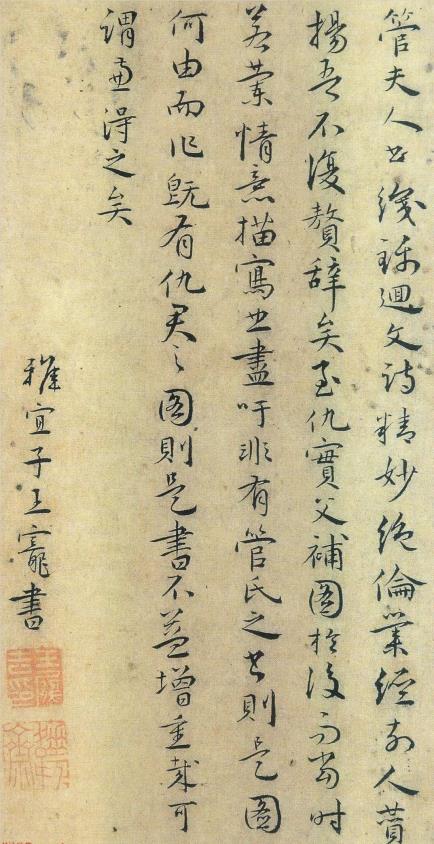 管夫人書織錦迴文詩精妙絕倫業經前人贊
揚吾不復贅辭矣至仇實父補圖於後而當時
若蘭情意描寫曲盡吁非有管氏之書則是圖
何由而作既有仇君之圖則是書不益增重哉可
謂兩得之矣
雅宜子王寵書